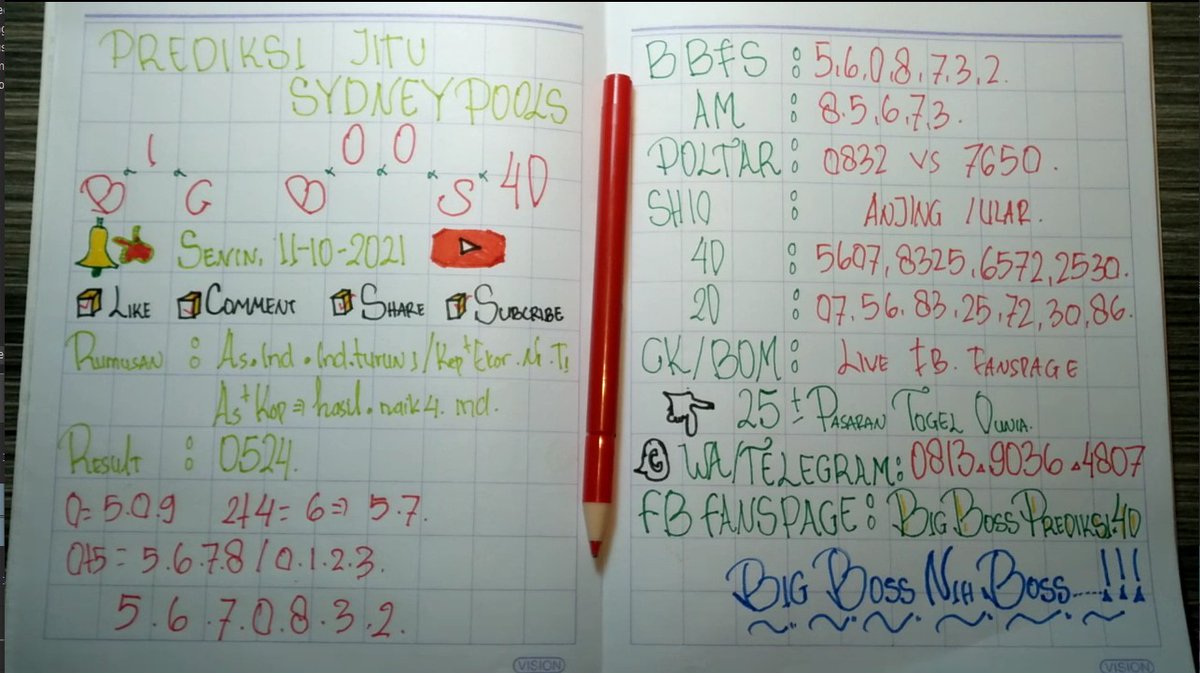 PREDIKSI JITU
SYDNEY POOLS
B 1 G B 0 0 S 4D
SENIN, 11-10-2021
LIKE COMMENT SHARE SUBCRIBE
RUMUSAN : As.Ind.Ind.turun 1/Kep+Ekor.N.T1
As+Kop⇒hasil.naik 4.md.
RESULT : 0524.
0=5.0.9 2+4=6⇒5.7.
0+5=5.6.7.8/0.1.2.3.
5.6.7.0.8.3.2.
VISION
BBFS : 5.6.0.8.7.3.2.
AM : 8.5.6.7.3.
POLTAR : 0832 VS 7650.
SHIO : ANJING/ULAR.
4D : 5607,8325,6572,2530.
2D : 07.56.83.25,72,30,86.
CK/BOM : LIVE FB. FANSPAGE
25± PASARAN TOGEL DUNIA.
WA/TELEGRAM: 0813.9036.4807
FB FANSPAGE : BIG BOSS PREDIKSI.4D
BIG BOSS NIH BOSS.....!!!
VISION